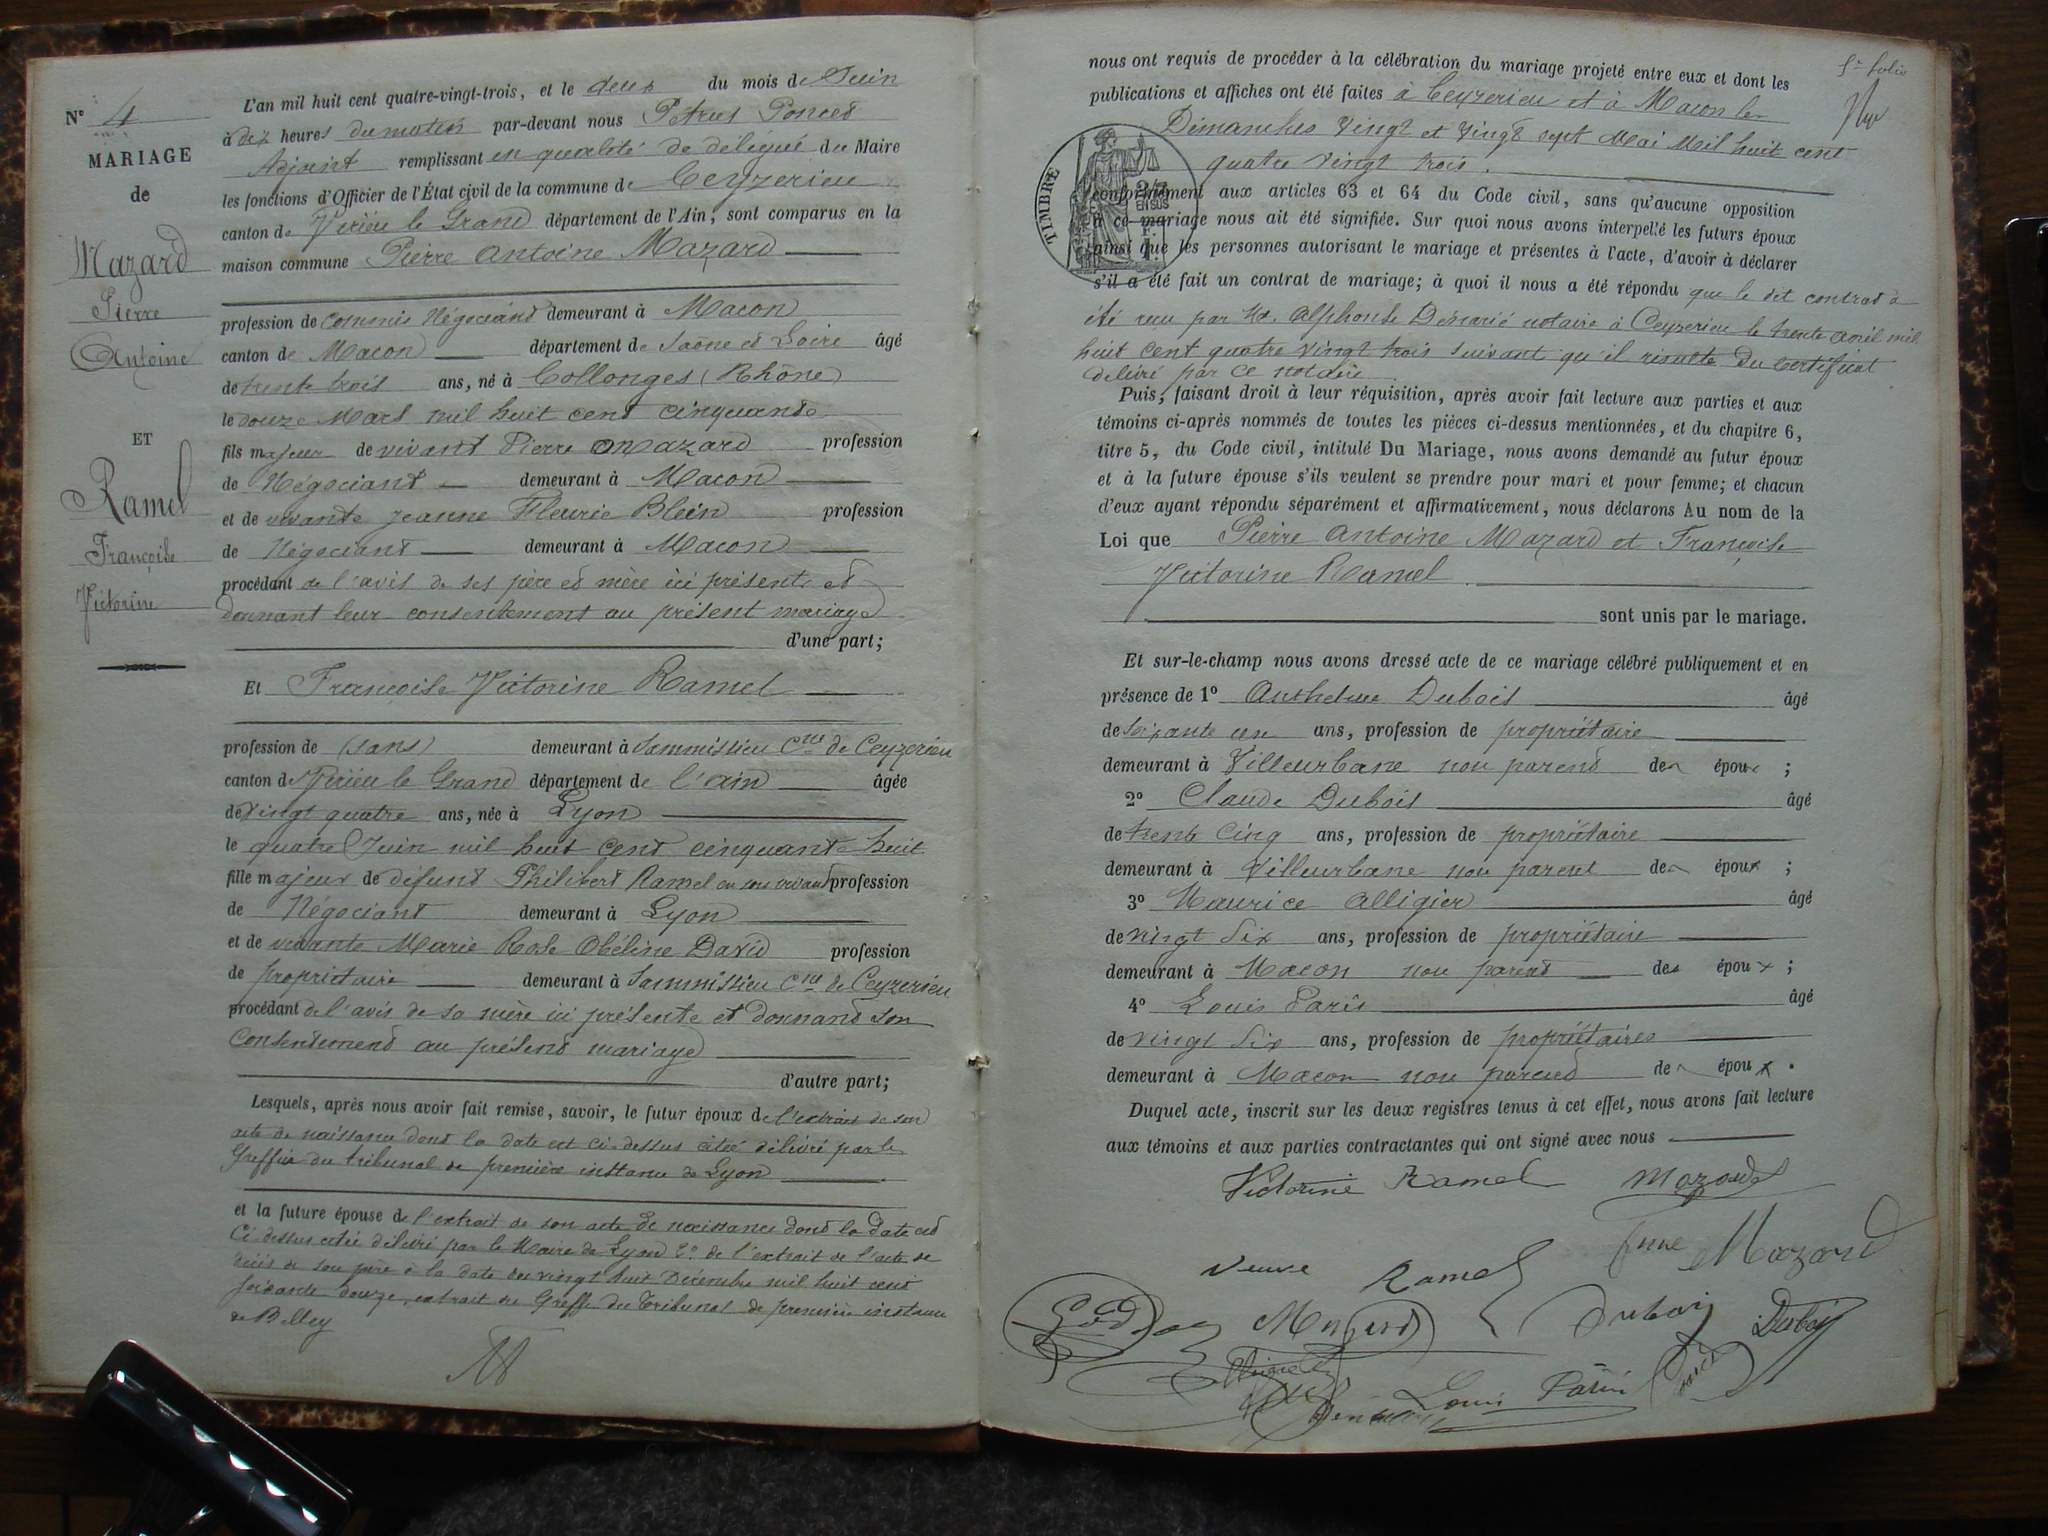 N° 4
MARIAGE
de
Mazard
Pierre
Antoine
ET
Ramel
Françoise
Victorine
L'an mil huit cent quatre-vingt-trois, et le deux du mois de Juin
à dix heures du matin par-devant nous Pétrus Poncet
Adjoint remplissant en qualité de délégué du Maire
les fonctions d'Officier de l'État civil de la commune de Ceyzerieu
canton de Virieu le Grand département de l'Ain, sont comparus en la
maison commune Pierre Antoine Mazard
profession de commis Négociant demeurant à Macon
canton de Macon département de Saône et Loire âgé
de trente trois ans, né à Collonges (Rhône)
le douze Mars mil huit cent cinquante
fils majeur de vivant Pierre Mazard profession
de Négociant demeurant à Macon
et de vivante Jeanne Fleurie Blein profession
de Négociant demeurant à Macon
procédant de l'avis de ses père et mère ici présents et
donnant leur consentement au présent mariage
d'une part;
Et Françoise Victorine Ramel
profession de (sans) demeurant à Sammissieu Cne de Ceyzerieu
canton de Virieu le Grand département de l'ain âgée
de vingt quatre ans, née à Lyon
le quatre Juin mil huit cent cinquante huit
fille majeur de défunt Philibert Ramel en son vivant profession
de Négociant demeurant à Lyon
et de vivante Marie Rose Obéline David profession
de propriétaire demeurant à Sammissieu Cne de Ceyzerieu
procédant de l'avis de sa mère ici présente et donnant son
Consentement au présent mariage
d'autre part;
Lesquels, après nous avoir fait remise, savoir, le futur époux de l'extrait de son
acte de naissance dont la date est ci-dessus citée délivré par le
Greffier du tribunal de première instance de Lyon
et la future épouse de l'extrait de son acte de naissance dont la date est
Ci dessus citée délivré par le Maire de Lyon 2° de l'extrait de l'acte de
décès de son père à la date du vingt huit Décembre mil huit cent
soixante douze, extrait du Greffe du Tribunal de première instance
de Belley
5e folio
nous ont requis de procéder à la célébration du mariage projeté entre eux et dont les
publications et affiches ont été faites à Ceyzerieu et à Macon les
Dimanches vingt et vingt sept Mai Mil huit cent
quatre vingt trois.
TIMBRE
conformément aux articles 63 et 64 du Code civil, sans qu'aucune opposition
à ce mariage nous ait été signifiée. Sur quoi nous avons interpellé les futurs époux
ainsi que les personnes autorisant le mariage et présentes à l'acte, d'avoir à déclarer
s'il a été fait un contrat de mariage; à quoi il nous a été répondu que le dit contrat a
été reçu par Me Alphonse Dénarié notaire à Ceyzerieu le trente avril mil
huit cent quatre vingt trois suivant qu'il résulte du certificat
délivré par ce notaire
Puis, faisant droit à leur réquisition, après avoir fait lecture aux parties et aux
témoins ci-après nommés de toutes les pièces ci-dessus mentionnées, et du chapitre 6,
titre 5, du Code civil, intitulé Du Mariage, nous avons demandé au futur époux
et à la future épouse s'ils veulent se prendre pour mari et pour femme; et chacun
d'eux ayant répondu séparément et affirmativement, nous déclarons Au nom de la
Loi que Pierre Antoine Mazard et Françoise
Victorine Ramel
sont unis par le mariage.
Et sur-le-champ nous avons dressé acte de ce mariage célébré publiquement et en
présence de 1° Anthelme Dubois âgé
de soixante un ans, profession de propriétaire
demeurant à Villeurbane non parent des époux ;
2° Claude Dubois âgé
de trente cinq ans, profession de propriétaire
demeurant à Villeurbane non parent des époux ;
3° Maurice Alligier âgé
de vingt six ans, profession de propriétaire
demeurant à Macon non parent des époux ;
4° Louis Paris âgé
de vingt six ans, profession de propriétaires
demeurant à Macon non parent des époux .
Duquel acte, inscrit sur les deux registres tenus à cet effet, nous avons fait lecture
aux témoins et aux parties contractantes qui ont signé avec nous
Victorine Ramel Mazard
Veuve Ramel Mazard
Mazard Dubois Dubois
Louis Paris